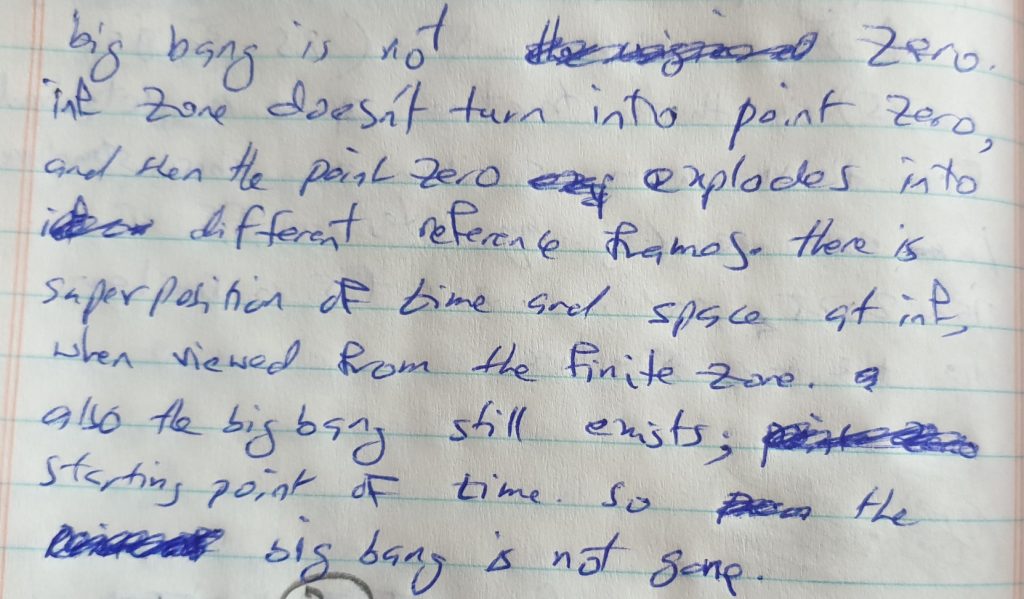 big bang is not zero.
inf zone doesn't turn into point zero,
and then the point zero explodes into
different reference frames. there is
superposition of time and space at inf,
when viewed from the finite zone.
also the big bang still exists;
starting point of time. so the
big bang is not gone.